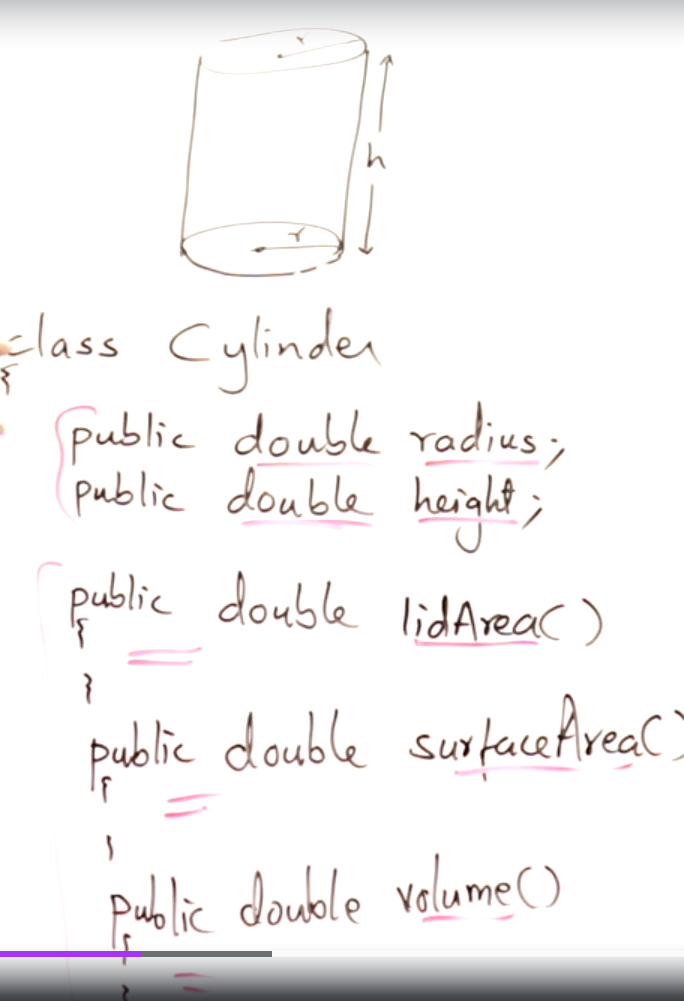 r
h
r
class Cylinder
{
public double radius;
public double height;
public double lidArea()
{
}
public double surfaceArea()
{
}
public double volume()
{
}